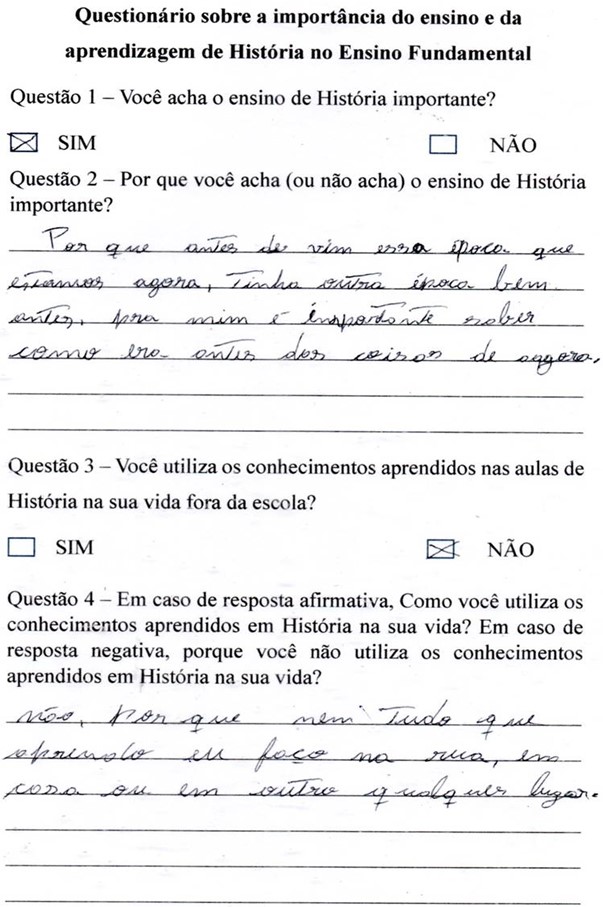 Questionário sobre a importância do ensino e da
aprendizagem de História no Ensino Fundamental
Questão 1 – Você acha o ensino de História importante?
SIM NÃO
Questão 2 – Por que você acha (ou não acha) o ensino de História
importante?
Por que antes de vim essa época que
estamos agora, Tinha outra época bem
antes, pra mim é importante saber
como era antes das coisas de aggora,
Questão 3 – Você utiliza os conhecimentos aprendidos nas aulas de
História na sua vida fora da escola?
SIM NÃO
Questão 4 – Em caso de resposta afirmativa, Como você utiliza os
conhecimentos aprendidos em História na sua vida? Em caso de
resposta negativa, porque você não utiliza os conhecimentos
aprendidos em História na sua vida?
não, por que nem Tudo que
aprendo eu faço na rua, em
casa ou em outro qualquer lugar.